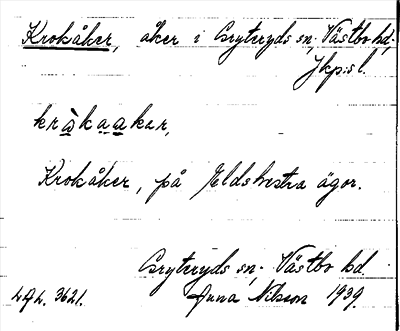 Krokåker, åker i Gryteryds sn, Västbo hd,
Jkp:s l.
kràkaakər,
Krokåker, på Eldshestra ägor.
Gryteryds sn, Västbo hd
L.A.L. 3621. Anna Nilsson 1939.